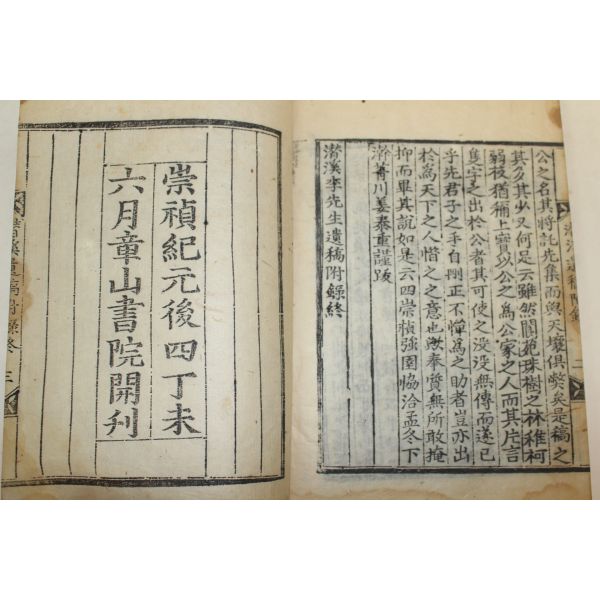 公之名其將託先集而與天壤俱獘矣是稿之
其多其少又何足云雖然閬苑珠樹之林稚柯
弱枝猶稱上寶以公之爲公家之人而其片言
隻字之出於公者其可使之没没無傳而遂已
乎先君子之手自刪正不憚爲之助者豈亦出
於爲天下之人惜之之意也歟奉賞無所敢掩
抑而畢其說如是云四崇禎強圉協洽孟冬下
澣菁川姜泰重謹跋
潛溪李先生遺稿附錄終
潛溪遺稿附錄 二
崇禎紀元後四丁未
六月章山書院開刋
潛溪遺稿附錄終 三